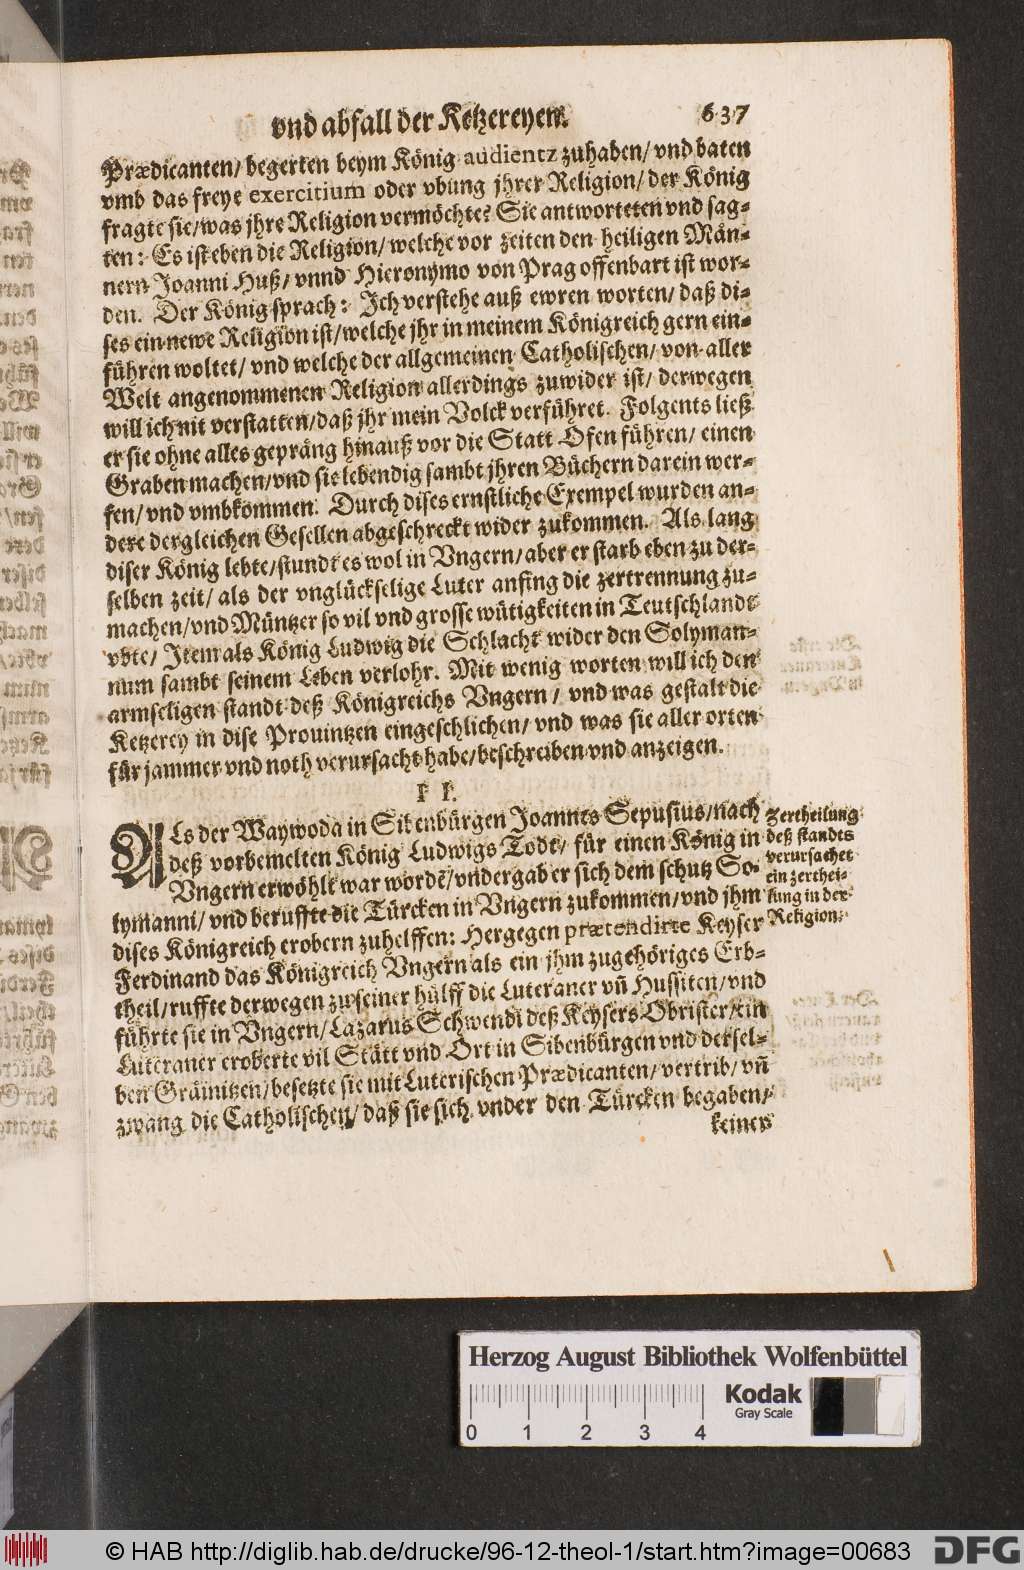 vnd abfall der Ketzereyen. 637
Prædicanten/ begerten beym König audientz zuhaben/ vnd baten
vmb das freye exercitium oder vbung jhrer Religion/ der König
fragte sie/ was jhre Religion vermöchte? Sie antworteten vnd sag-
ten: Es ist eben die Religion/ welche vor zeiten den heiligen Män-
nern Joanni Huß/ vnnd Hieronymo von Prag offenbart ist wor-
den. Der König sprach: Ich verstehe auß ewren worten/ daß di-
ses ein newe Religion ist/ welche jhr in meinem Königreich gern ein-
führen woltet/ vnd welche der allgemeinen Catholischen/ von aller
Welt angenommenen Religion allerdings zuwider ist/ derwegen
will ich nit verstatten/ daß jhr mein Volck verführet. Folgents ließ
er sie ohne alles gepräng hinauß vor die Statt Ofen führen/ einen
Graben machen/ vnd sie lebendig sambt jhren Büchern darein wer-
fen/ vnd vmbkommen. Durch dises ernstliche Exempel wurden an-
dere dergleichen Gesellen abgeschreckt wider zukommen. Als lang
diser König lebte/ stundt es wol in Vngern/ aber er starb eben zu der-
selben zeit/ als der vnglückselige Luter anfing die zertrennung zu-
machen/ vnd Müntzer so vil vnd grosse wütigkeiten in Teutschlandt
vbte/ Item als König Ludwig die Schlacht wider den Solyman-
num sambt seinem Leben verlohr. Mit wenig worten will ich den
armseligen standt deß Königreichs Vngern/ vnd was gestalt die
Ketzerey in dise Prouintzen eingeschlichen/ vnd was sie aller orten
für jammer vnd noth verursacht habe/ beschreiben vnd anzeigen.
II.
ALs der Waywoda in Sibenbürgen Joannes Sepusius/ nach
deß vorbemelten König Ludwigs Todt/ für einen König in
Vngern erwöhlt war wordē/ vndergab er sich dem schutz So-
lymanni/ vnd beruffte die Türcken in Vngern zukommen/ vnd jhm
dises Königreich erobern zuhelffen: Hergegen prætendirte Keyser
Ferdinand das Königreich Vngern als ein jhm zugehöriges Erb-
theil/ ruffte derwegen zu seiner hülff die Luteraner vñ Hussiten/ vnd
führte sie in Vngern/ Lazarus Schwendi deß Keysers Obrister/ ein
Luteraner eroberte vil Stätt vnd Ort in Sibenbürgen vnd dersel-
ben Gräinitzen/ besetzte sie mit Luterischen Prædicanten/ vertrib/ vñ
zwang die Catholischen/ daß sie sich vnder den Türcken begaben/
keiner
Zertheilung
deß standts
verursachet
ein zerthei-
lung in der
Religion.
Herzog August Bibliothek Wolfenbüttel
Kodak
Gray Scale
0 1 2 3 4
© HAB http://diglib.hab.de/drucke/96-12-theol-1/start.htm?image=00683
DFG